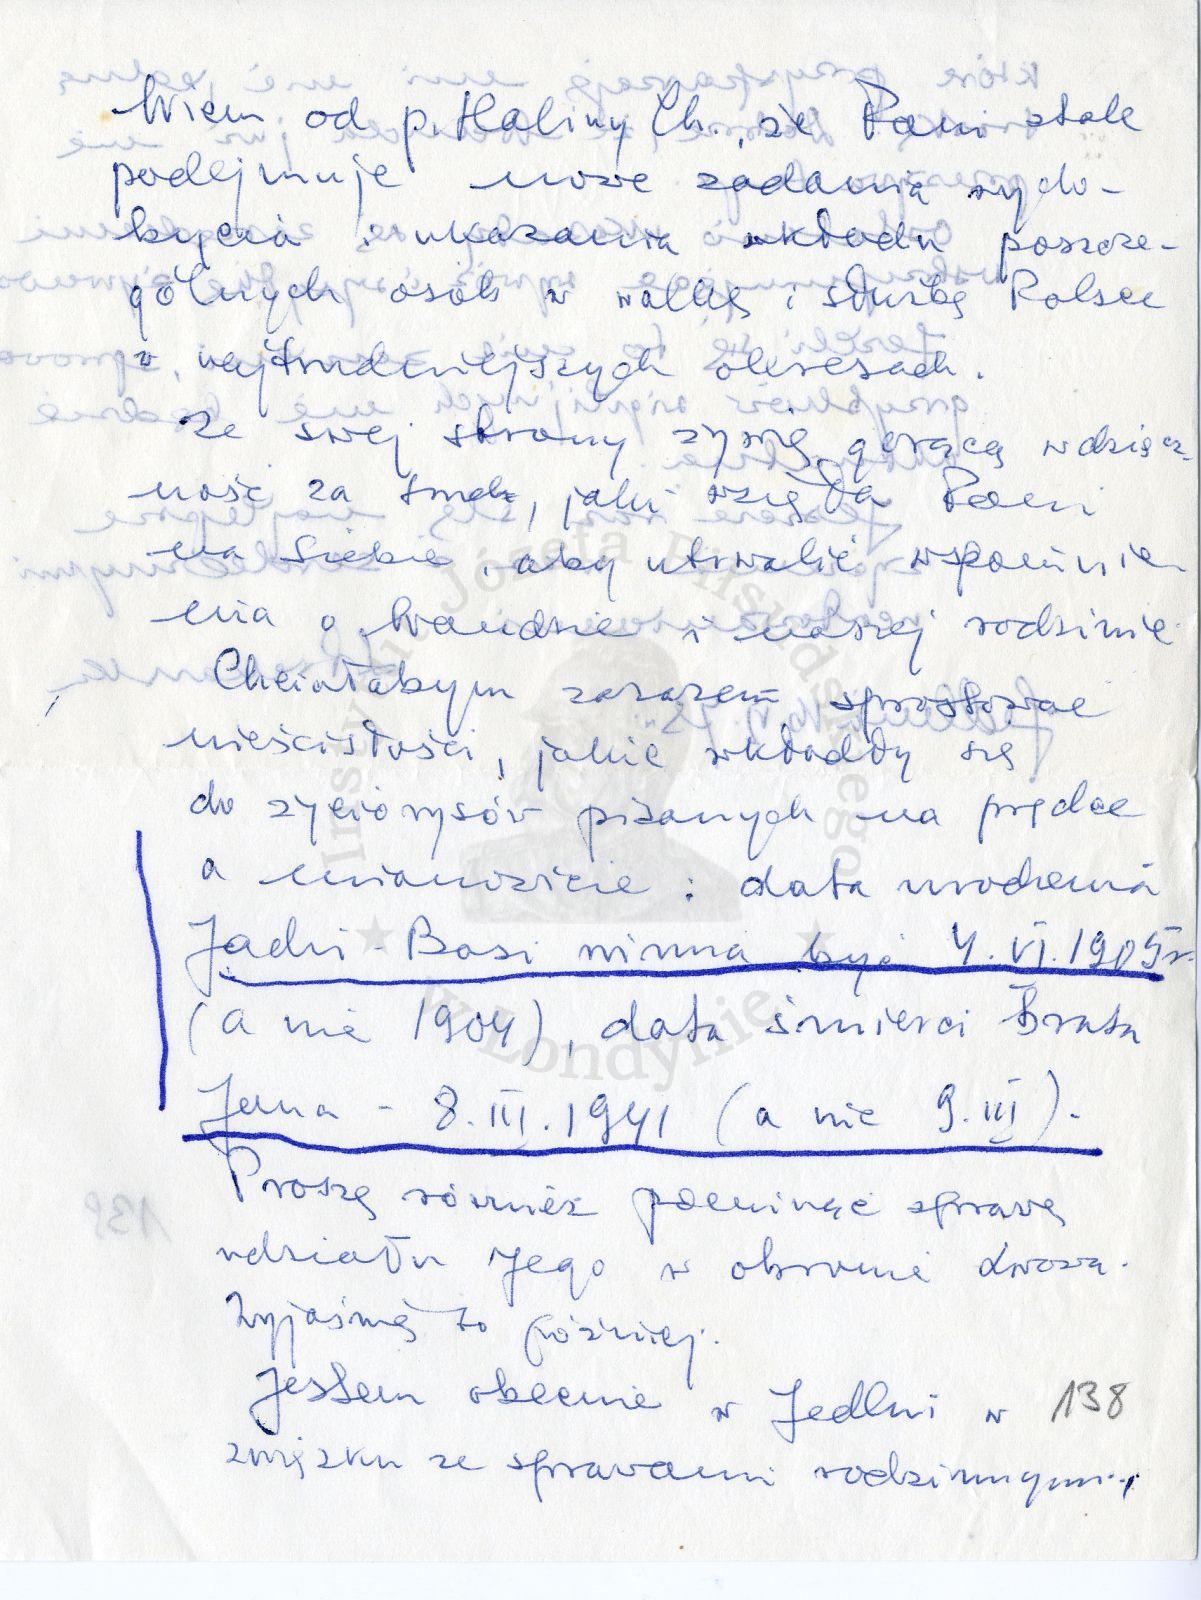 Wiem od p. Haliny Ch., że Pani stale
podejmuje nowe zadania wydo-
bycia i ukazania wkładu poszcze-
gólnych osób w walkę i służbę Polsce
w najtrudniejszych okresach.
Ze swej strony żywię gorącą wdzięcz-
ność za trud, jaki wzięła Pani
na siebie, aby utrwalić wspomnie-
nia o Wandzie i naszej rodzinie.
Chciałabym zarazem sprostować
nieścisłości, jakie wkładły się
do życiorysów pisanych na prędce
a mianowicie: data urodzenia
Jadzi-Basi winna być 4.VI.1905r.
(a nie 1904), data śmierci Brata
Jana - 8.III.1941 (a nie 9.III).
Proszę również pominąć sprawę
udziału Jego w obronie Lwowa.
Wyjaśnię to później.
Jestem obecnie w Jedlni w
związku ze sprawami rodzinnymi,
138
Instytut Józefa Piłsudskiego
w Londynie